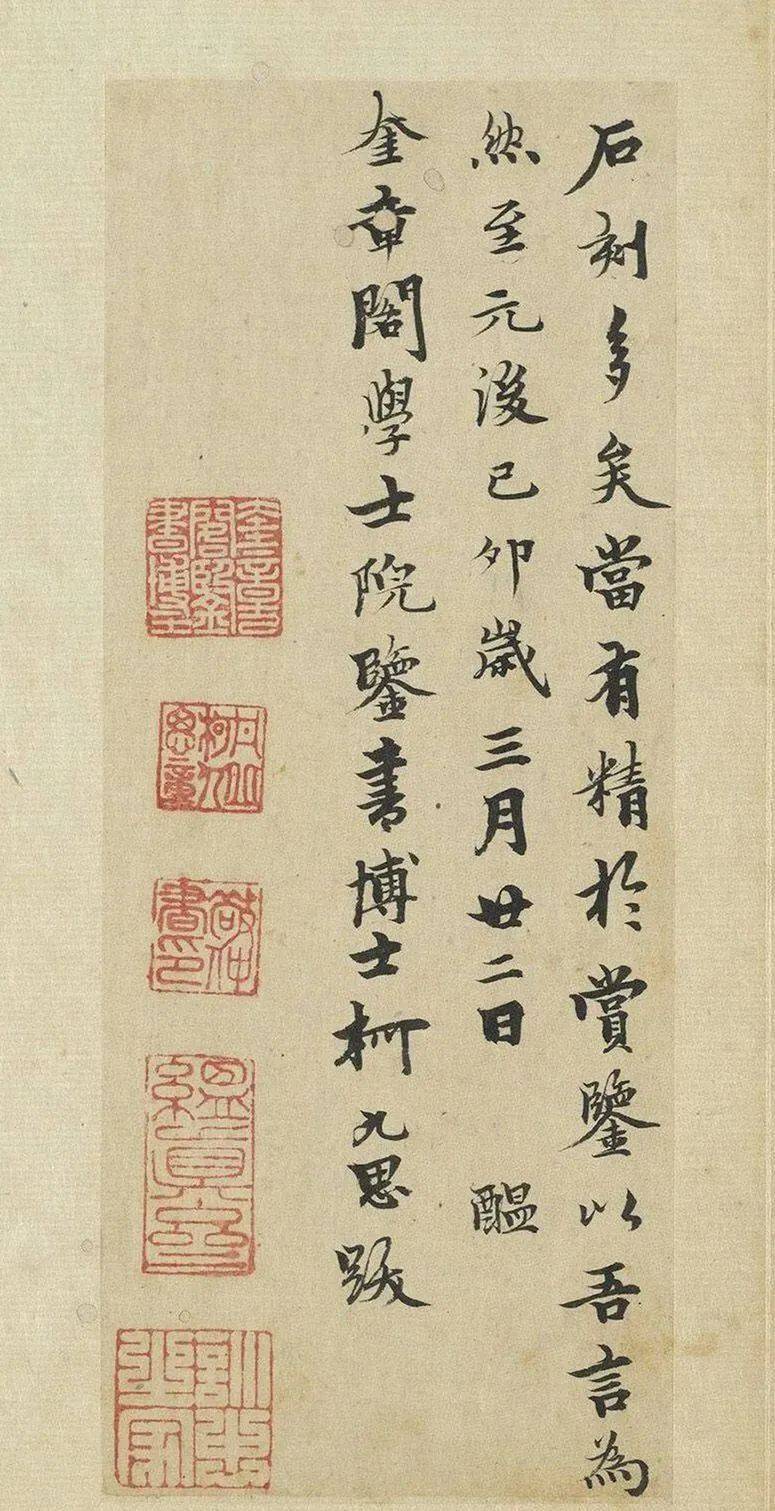 石刻多矣當有精於賞鑒以吾言為
然至元後己卯歲三月廿二日 醖
奎章閣學士院鑒書博士柯九思跋
奎章閣鑒書博士
敬仲書印
縕真齋
訓忠之家